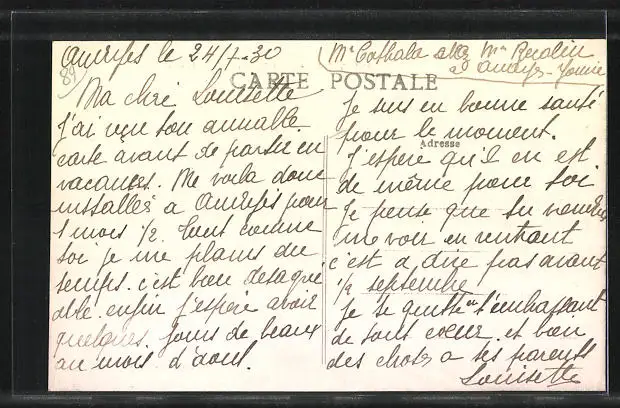 le 24/7-30
Mme Cathala chez Mme
CARTE POSTALE
89
Ma chère Louisette
J'ai reçu ton aimable
carte avant de partir en
vacances. Me voila donc
installée a pour
1 mois 1/2. Tout comme
toi je me plains du
temps. c'est bien désagré
able. enfin j'espère avoir
quelques jours de beaux
au mois d'août.
Je suis en bonne santé
pour le moment.
Adresse
J'espère qu'il en est
de même pour toi
Je pense que tu viendras
me voir en rentrant
c'est a dire pas avant
1/2 septembre
Je te quitte en t'embrassant
de tout coeur et bien
des choses a tes parents
Louisette